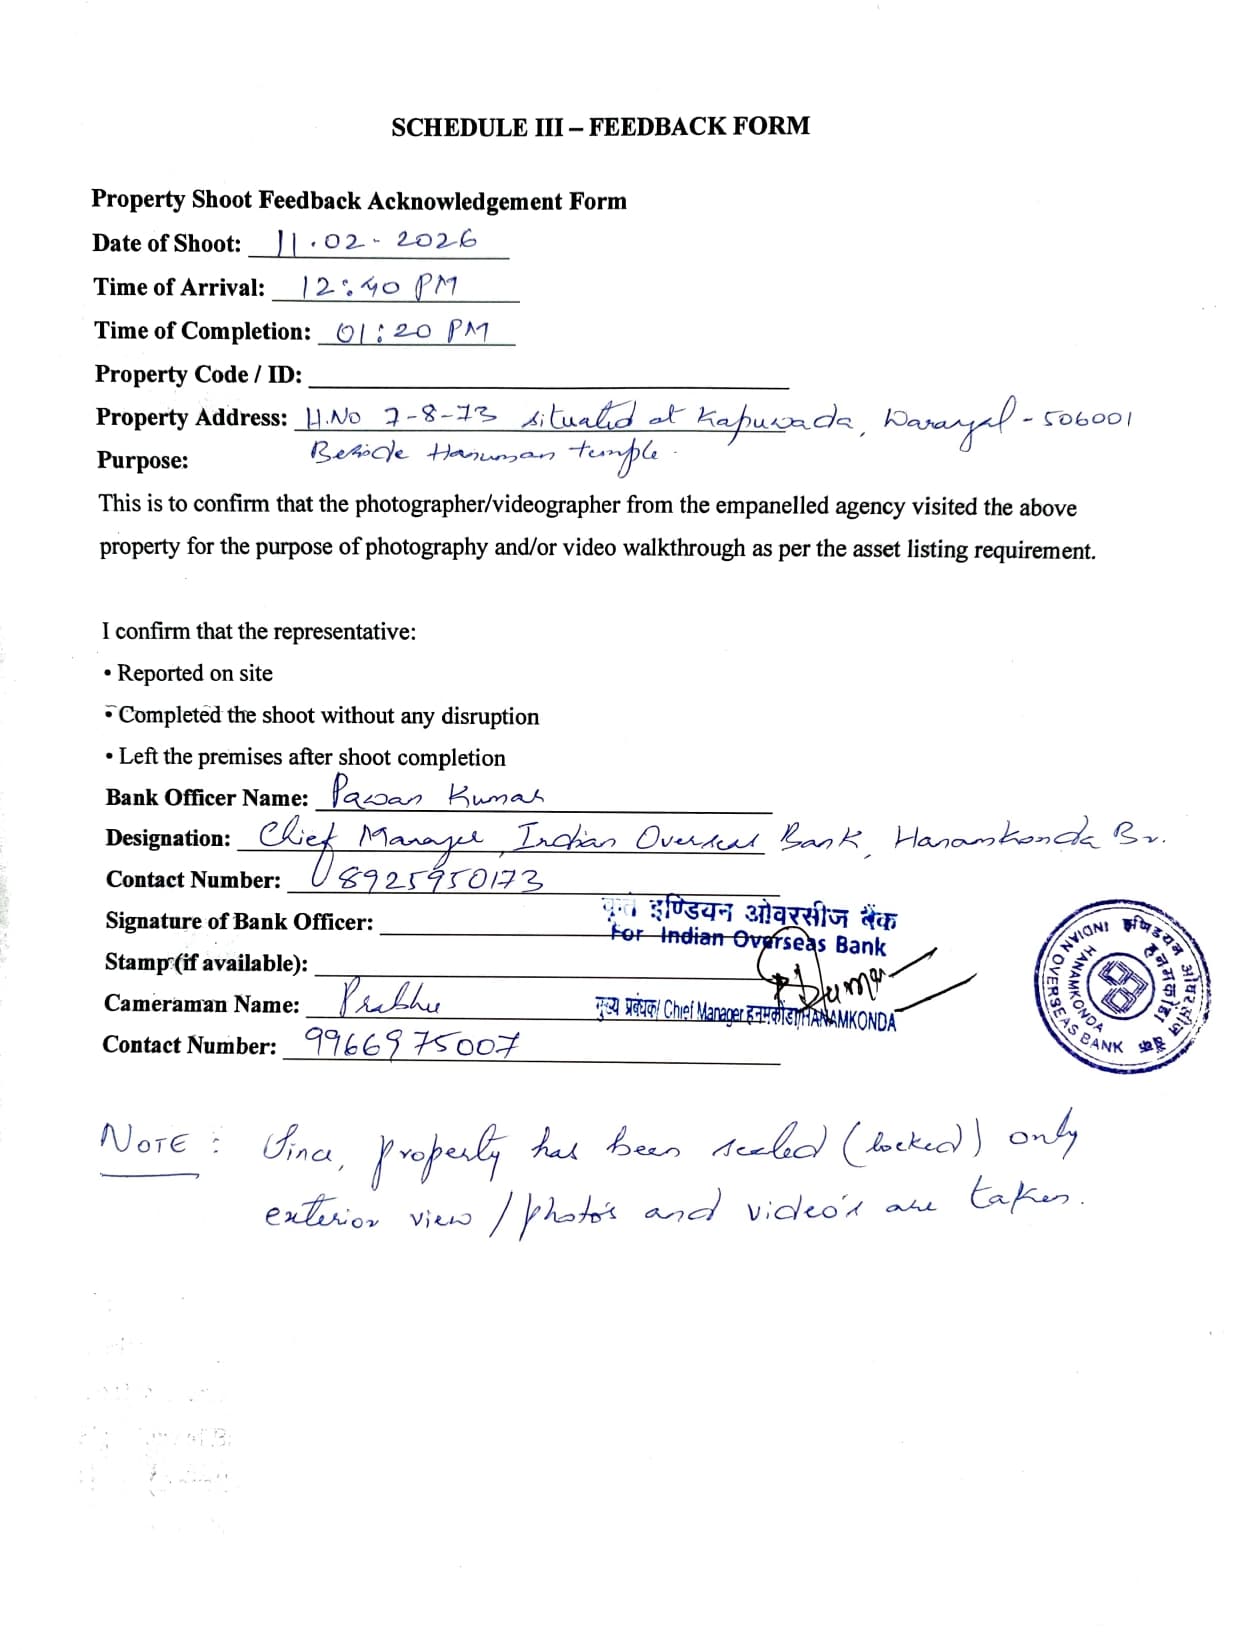 SCHEDULE III – FEEDBACK FORM
Property Shoot Feedback Acknowledgement Form
Date of Shoot: 11.02-2026
Time of Arrival: 12:40 PM
Time of Completion: 01:20 PM
Property Code / ID:
Property Address: H.No 7-8-73 situated at Kapuwada, Warangal - 506001
Beside Hanuman temple.
Purpose:
This is to confirm that the photographer/videographer from the empanelled agency visited the above
property for the purpose of photography and/or video walkthrough as per the asset listing requirement.
I confirm that the representative:
• Reported on site
• Completed the shoot without any disruption
• Left the premises after shoot completion
Bank Officer Name: Pawan Kumar
Designation: Chief Manager, Indian Overseas Bank, Hanamkonda Br.
Contact Number: 8925950173
कृते इण्डियन ओवरसीज बैंक
Signature of Bank Officer:
For Indian Overseas Bank
Stamp (if available):
Cameraman Name: Prabhu
मुख्य प्रबंधक/ Chief Manager हनमकोंडा/HANAMKONDA
Contact Number: 9966975007
इण्डियन ओवरसीज बैंक
हनमकोंडा
INDIAN OVERSEAS BANK
HANAMKONDA
NOTE : Since, property has been sealed (locked) only
exterior view / photo's and video's are taken.